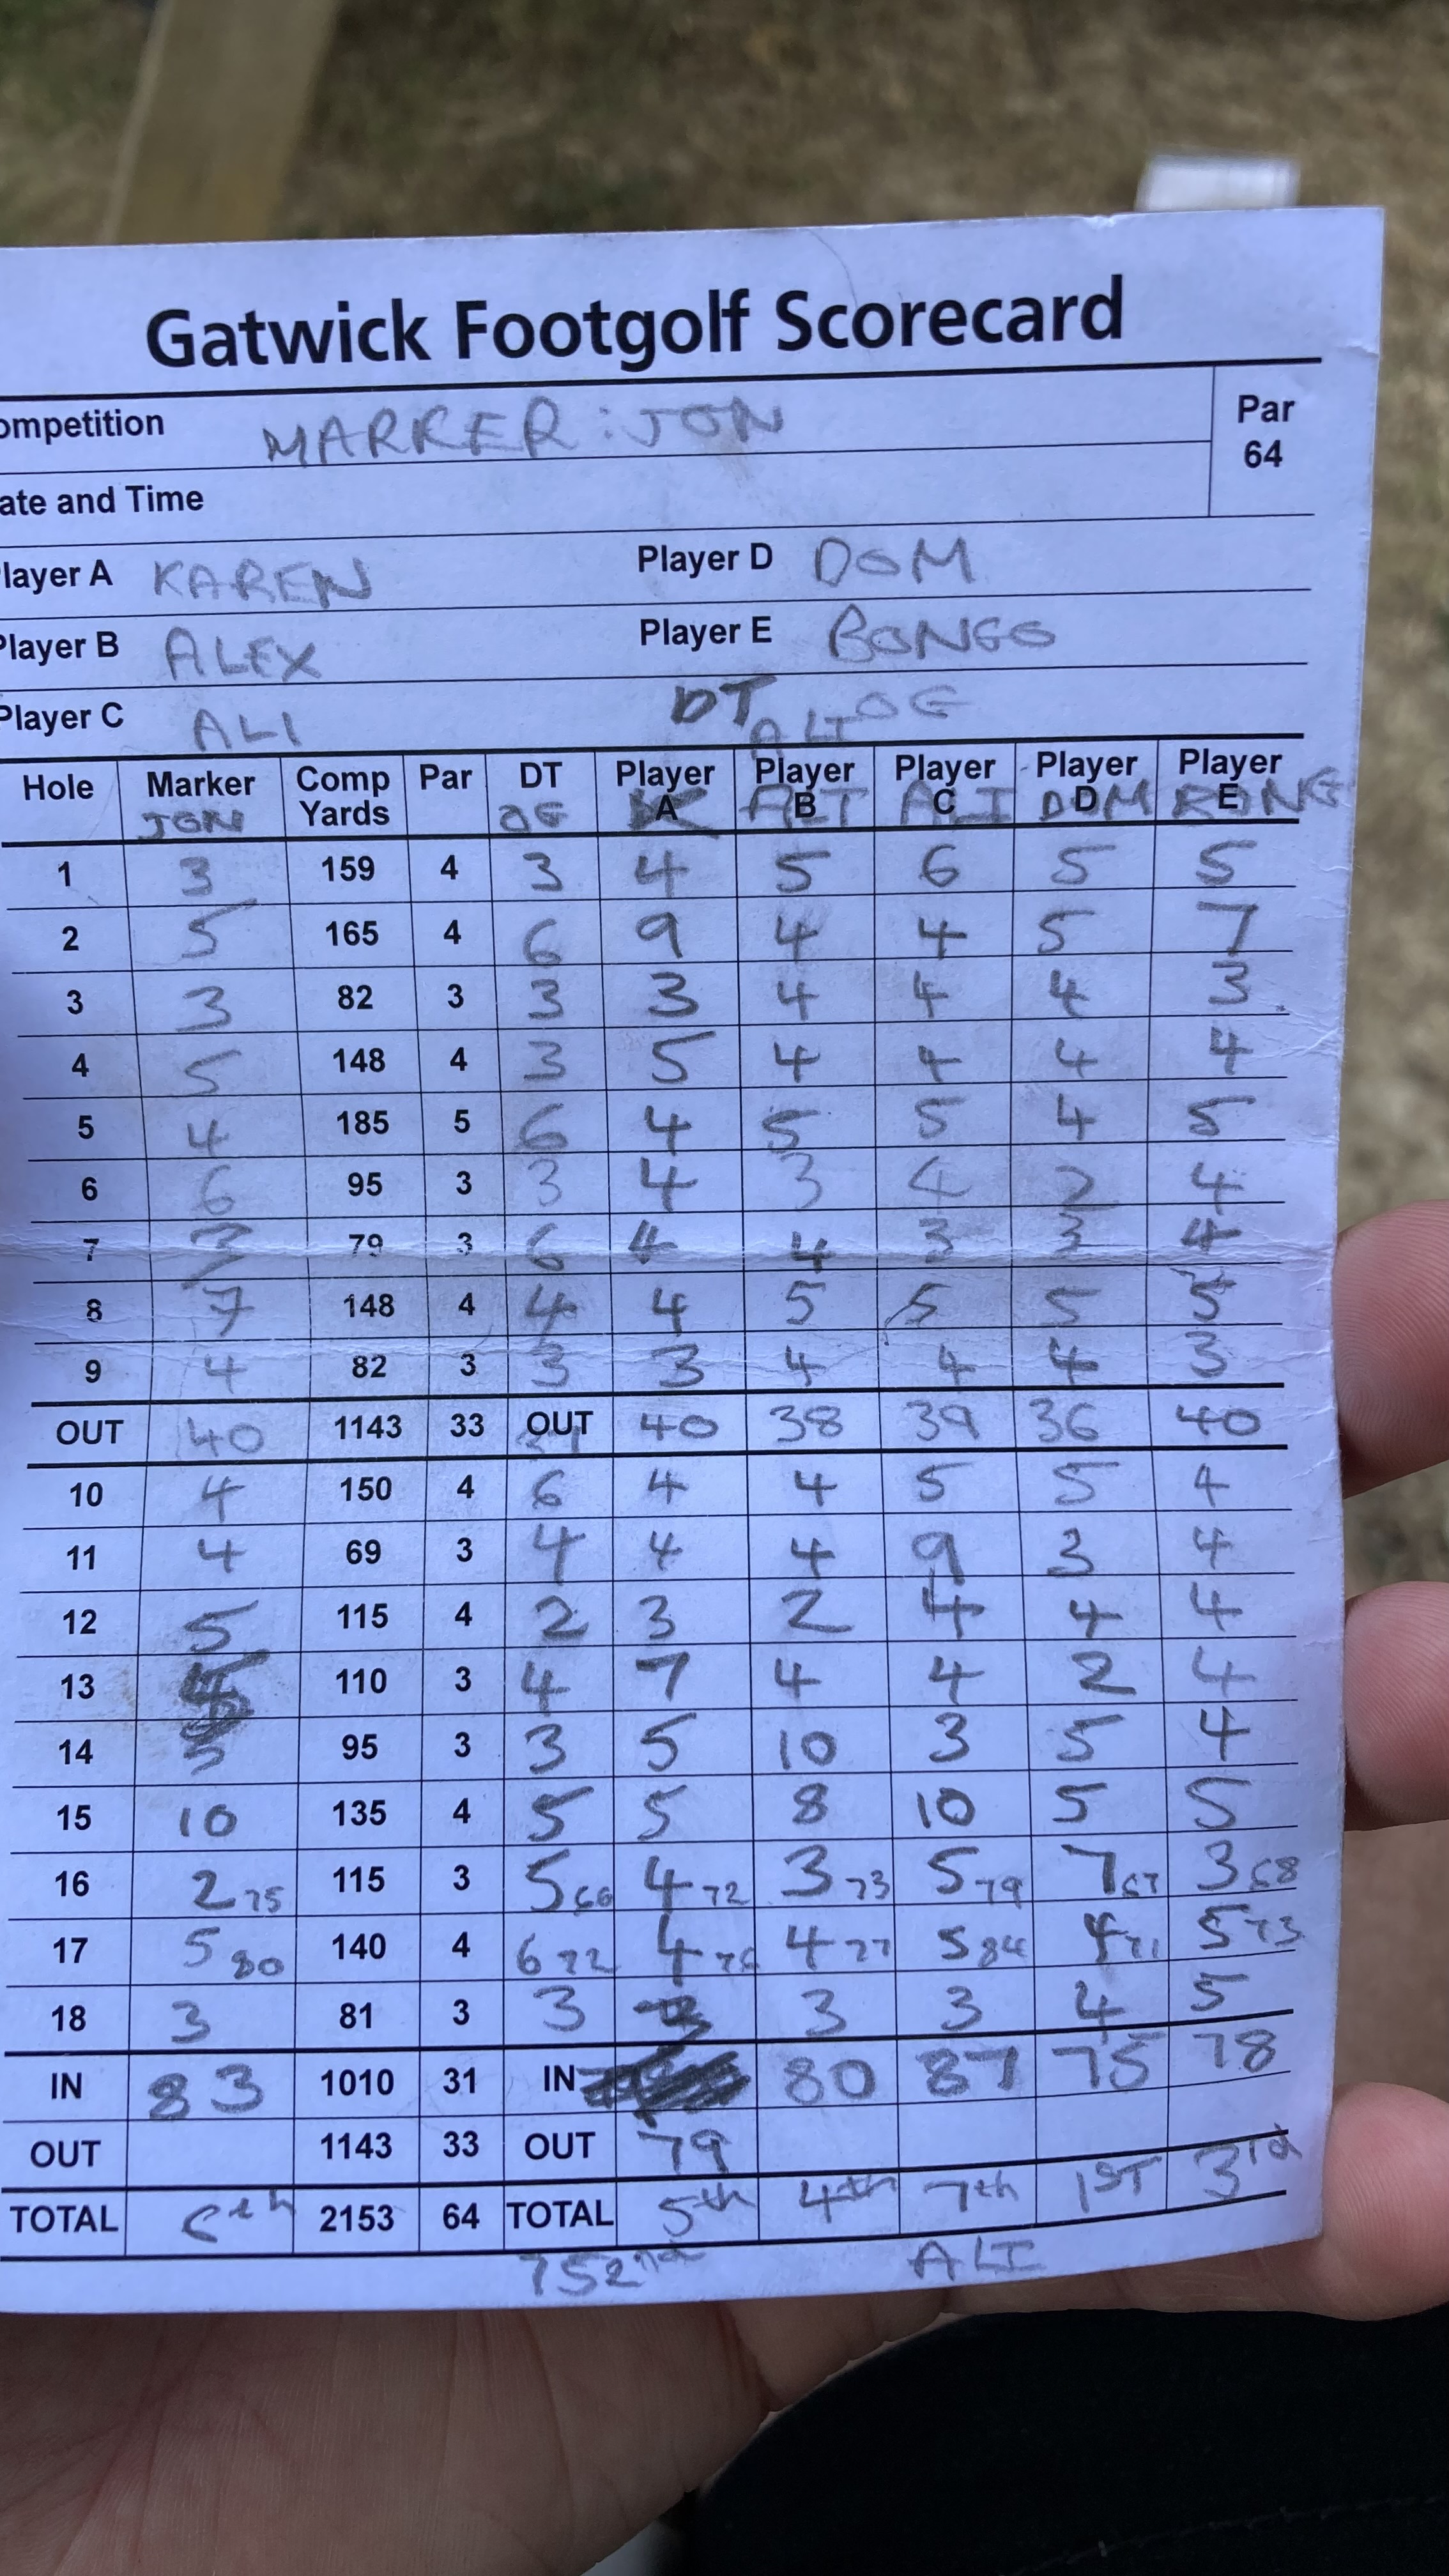 Gatwick Footgolf Scorecard
ompetition MARKER : JON Par 64
ate and Time
layer A KAREN Player D DOM
Player B ALEX Player E BONGO
Player C ALI DT OG
ALI
Hole Marker Comp Yards Par DT Player A Player B Player C Player D Player E
JON OG K ALI DOM
1 3 159 4 3 4 5 6 5 5
2 5 165 4 6 9 4 4 5 7
3 3 82 3 3 3 4 4 4 3
4 5 148 4 3 5 4 4 4 4
5 4 185 5 6 4 5 5 4 5
6 6 95 3 3 4 3 4 2 4
7 3 79 3 6 4 4 3 3 4
8 7 148 4 4 4 5 5 5 5
9 4 82 3 3 3 4 4 4 3
OUT 40 1143 33 OUT 40 38 39 36 40
10 4 150 4 6 4 4 5 5 4
11 4 69 3 4 4 4 9 3 4
12 5 115 4 2 3 2 4 4 4
13 110 3 4 7 4 4 2 4
14 5 95 3 3 5 10 3 5 4
15 10 135 4 5 5 8 10 5 5
16 2 75 115 3 5 66 4 72 3 73 5 79 7 67 3 68
17 5 80 140 4 6 72 4 76 4 77 5 84 4 71 5 73
18 3 81 3 3 3 3 3 4 5
IN 83 1010 31 IN 80 87 75 78
OUT 1143 33 OUT 79
TOTAL 6th 2153 64 TOTAL 5th 4th 7th 1ST 3rd
75 2nd ALI